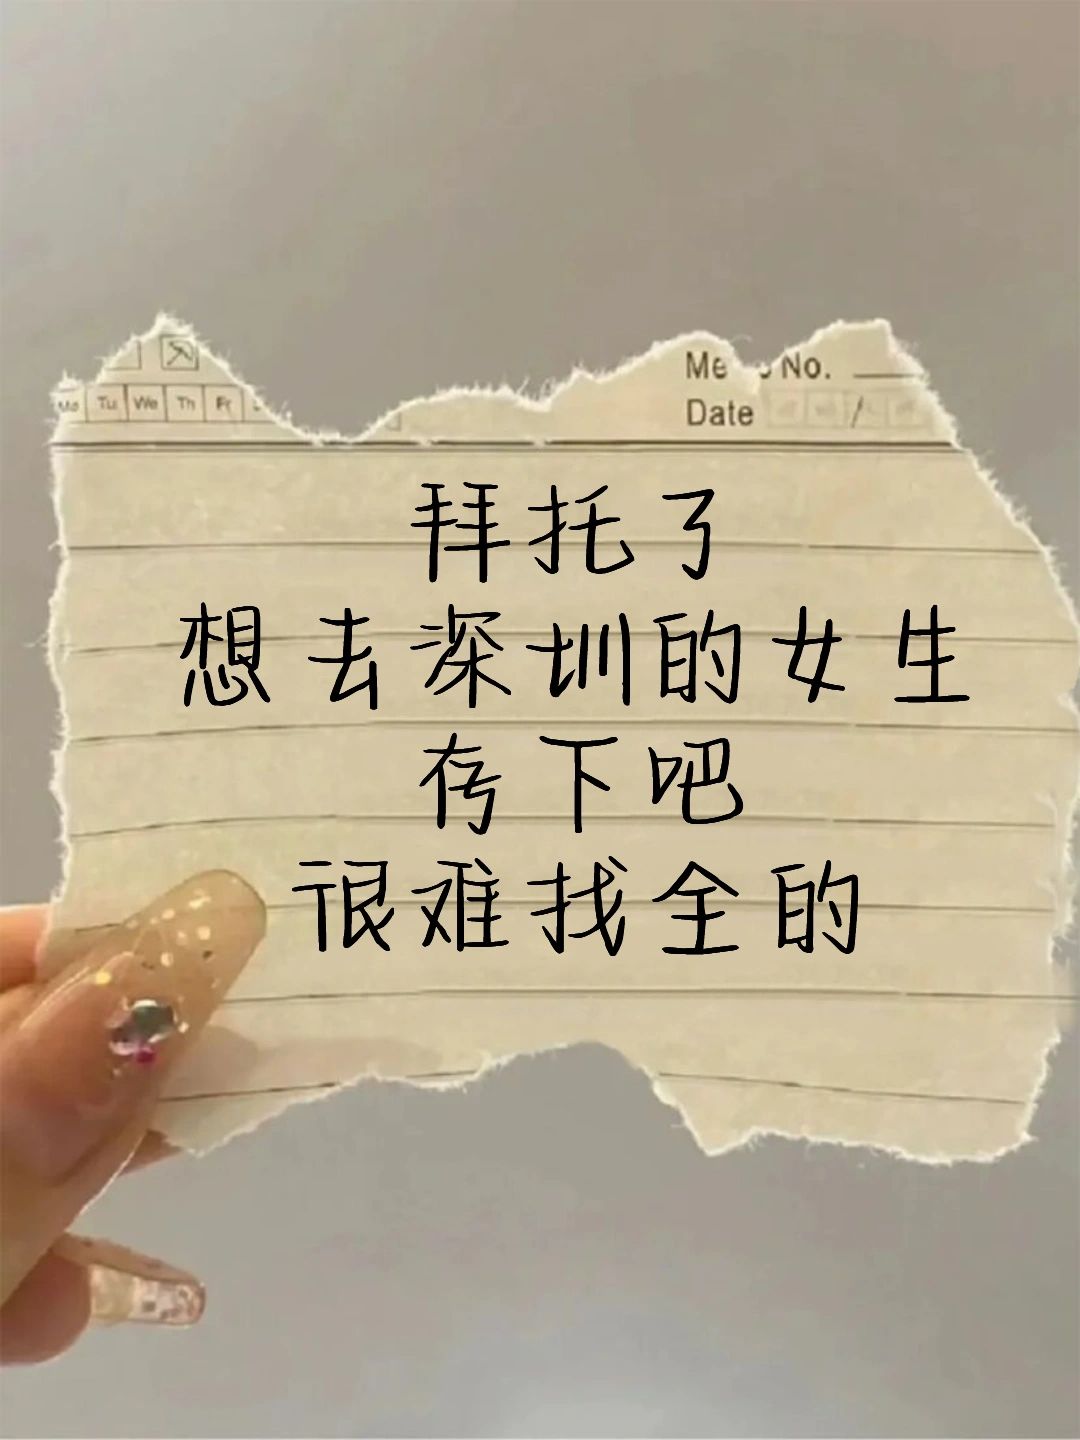 Mo Tu We Th Fr
No.
Date /
拜托了
想去深圳的女生
存下吧
很难找全的